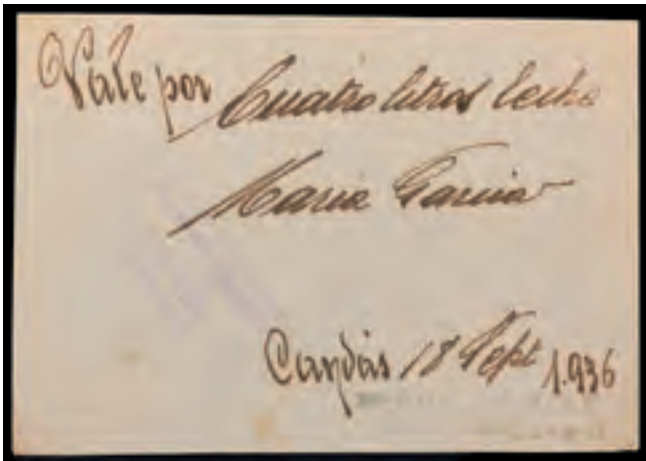 Vale por Cuatro litros leche
Maria Garcia
Candás 18 Sept 1.936